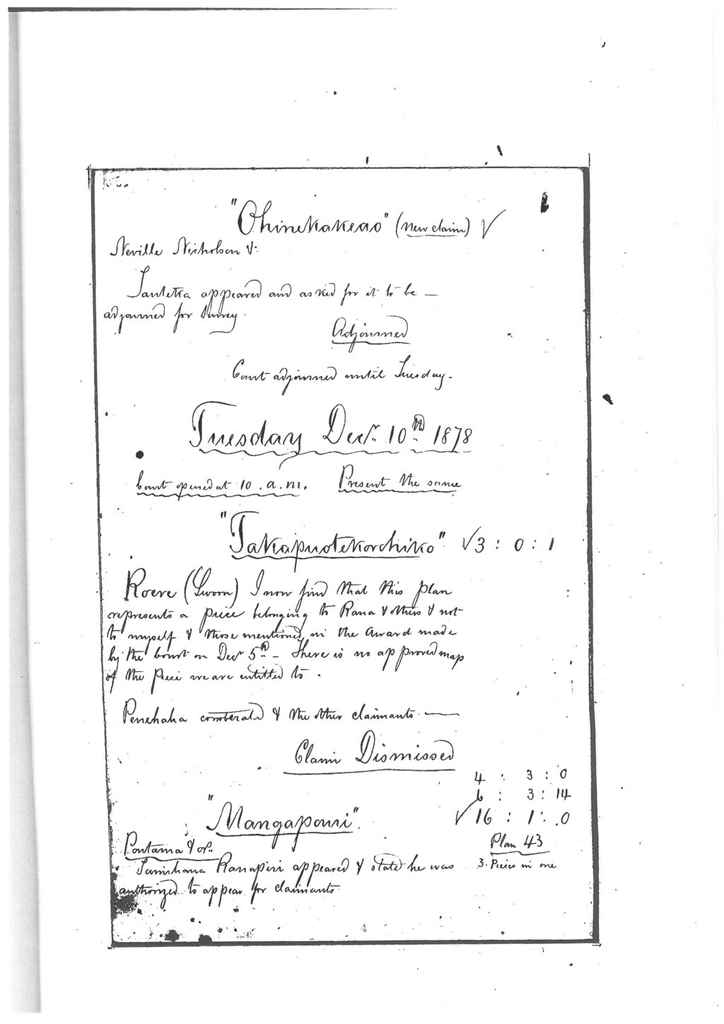 "Ohinekakeao" (new claim) √
Neville Nicholson &.
appeared and asked for it to be —
adjourned for Survey.
Adjourned
Court adjourned until Tuesday.
Tuesday Decr. 10th 1878
Court opened at 10. a.m. Present the same
√ 3 : 0 : 1
(Sworn) I now find that this plan
represents a piece belonging to Rana & others & not
to myself & those mentioned in the Award made
by the Court on Decr 5th - There is no approved map
of the piece we are entitled to.
Penehaha & the other claimants —
Claim Dismissed
4 : 3 : 0
6 : 3 : 14
"Mangapouri". √ 16 : 1 : 0
Plan 43
Poutama & ors.
appeared & stated he was 3. Pieces in one
authorized to appear for claimants